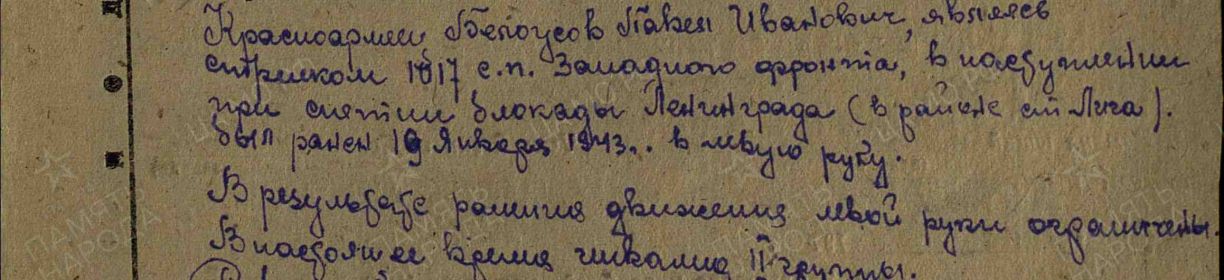 Красноармеец Белоусов Павел Иванович, являясь
стрелком 1017 с.п. Западного фронта, в наступлении
при снятии блокады Ленинграда (в районе ст
был ранен 19 Января 1943.. в левую руку.
В результате ранения движения левой руки ограничены.
В настоящее время инвалид II группы.
ПАМЯТЬ
НАРОДА